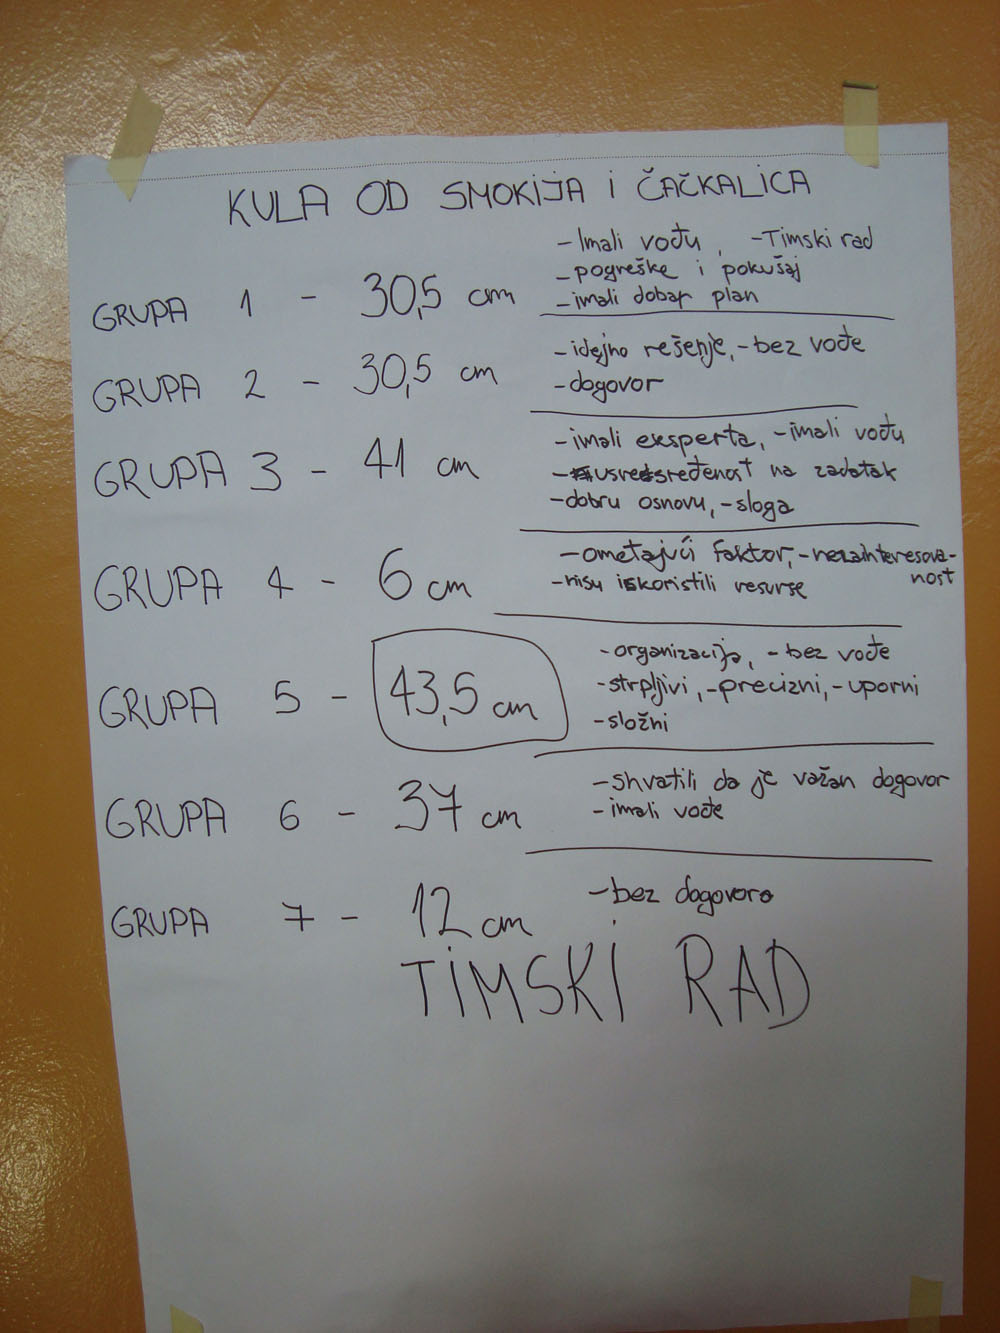 KULA OD SMOKIJA i ČAČKALICA
GRUPA 1 - 30,5 cm
- Imali vođu, - Timski rad
- pogreške i pokušaj
- imali dobar plan
GRUPA 2 - 30,5 cm
- idejno rešenje, - bez vođe
- dogovor
GRUPA 3 - 41 cm
- imali eksperta, - imali vođu
- usredsređenost na zadatak
- dobru osnovu, - sloga
GRUPA 4 - 6 cm
- ometajući faktor, - nezainteresova-
nost
- nisu iskoristili resurse
GRUPA 5 - 43,5 cm
- organizacija, - bez vođe
- strpljivi, - precizni, - uporni
- složni
GRUPA 6 - 37 cm
- shvatili da je važan dogovor
- imali vođe
GRUPA 7 - 12 cm
- bez dogovora
TIMSKI RAD